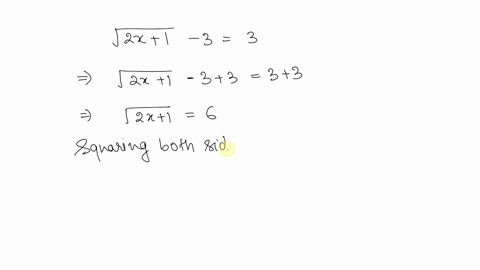 √(2x+1) - 3 = 3
⇒ √(2x+1) - 3 + 3 = 3 + 3
⇒ √(2x+1) = 6
Squaring both sid